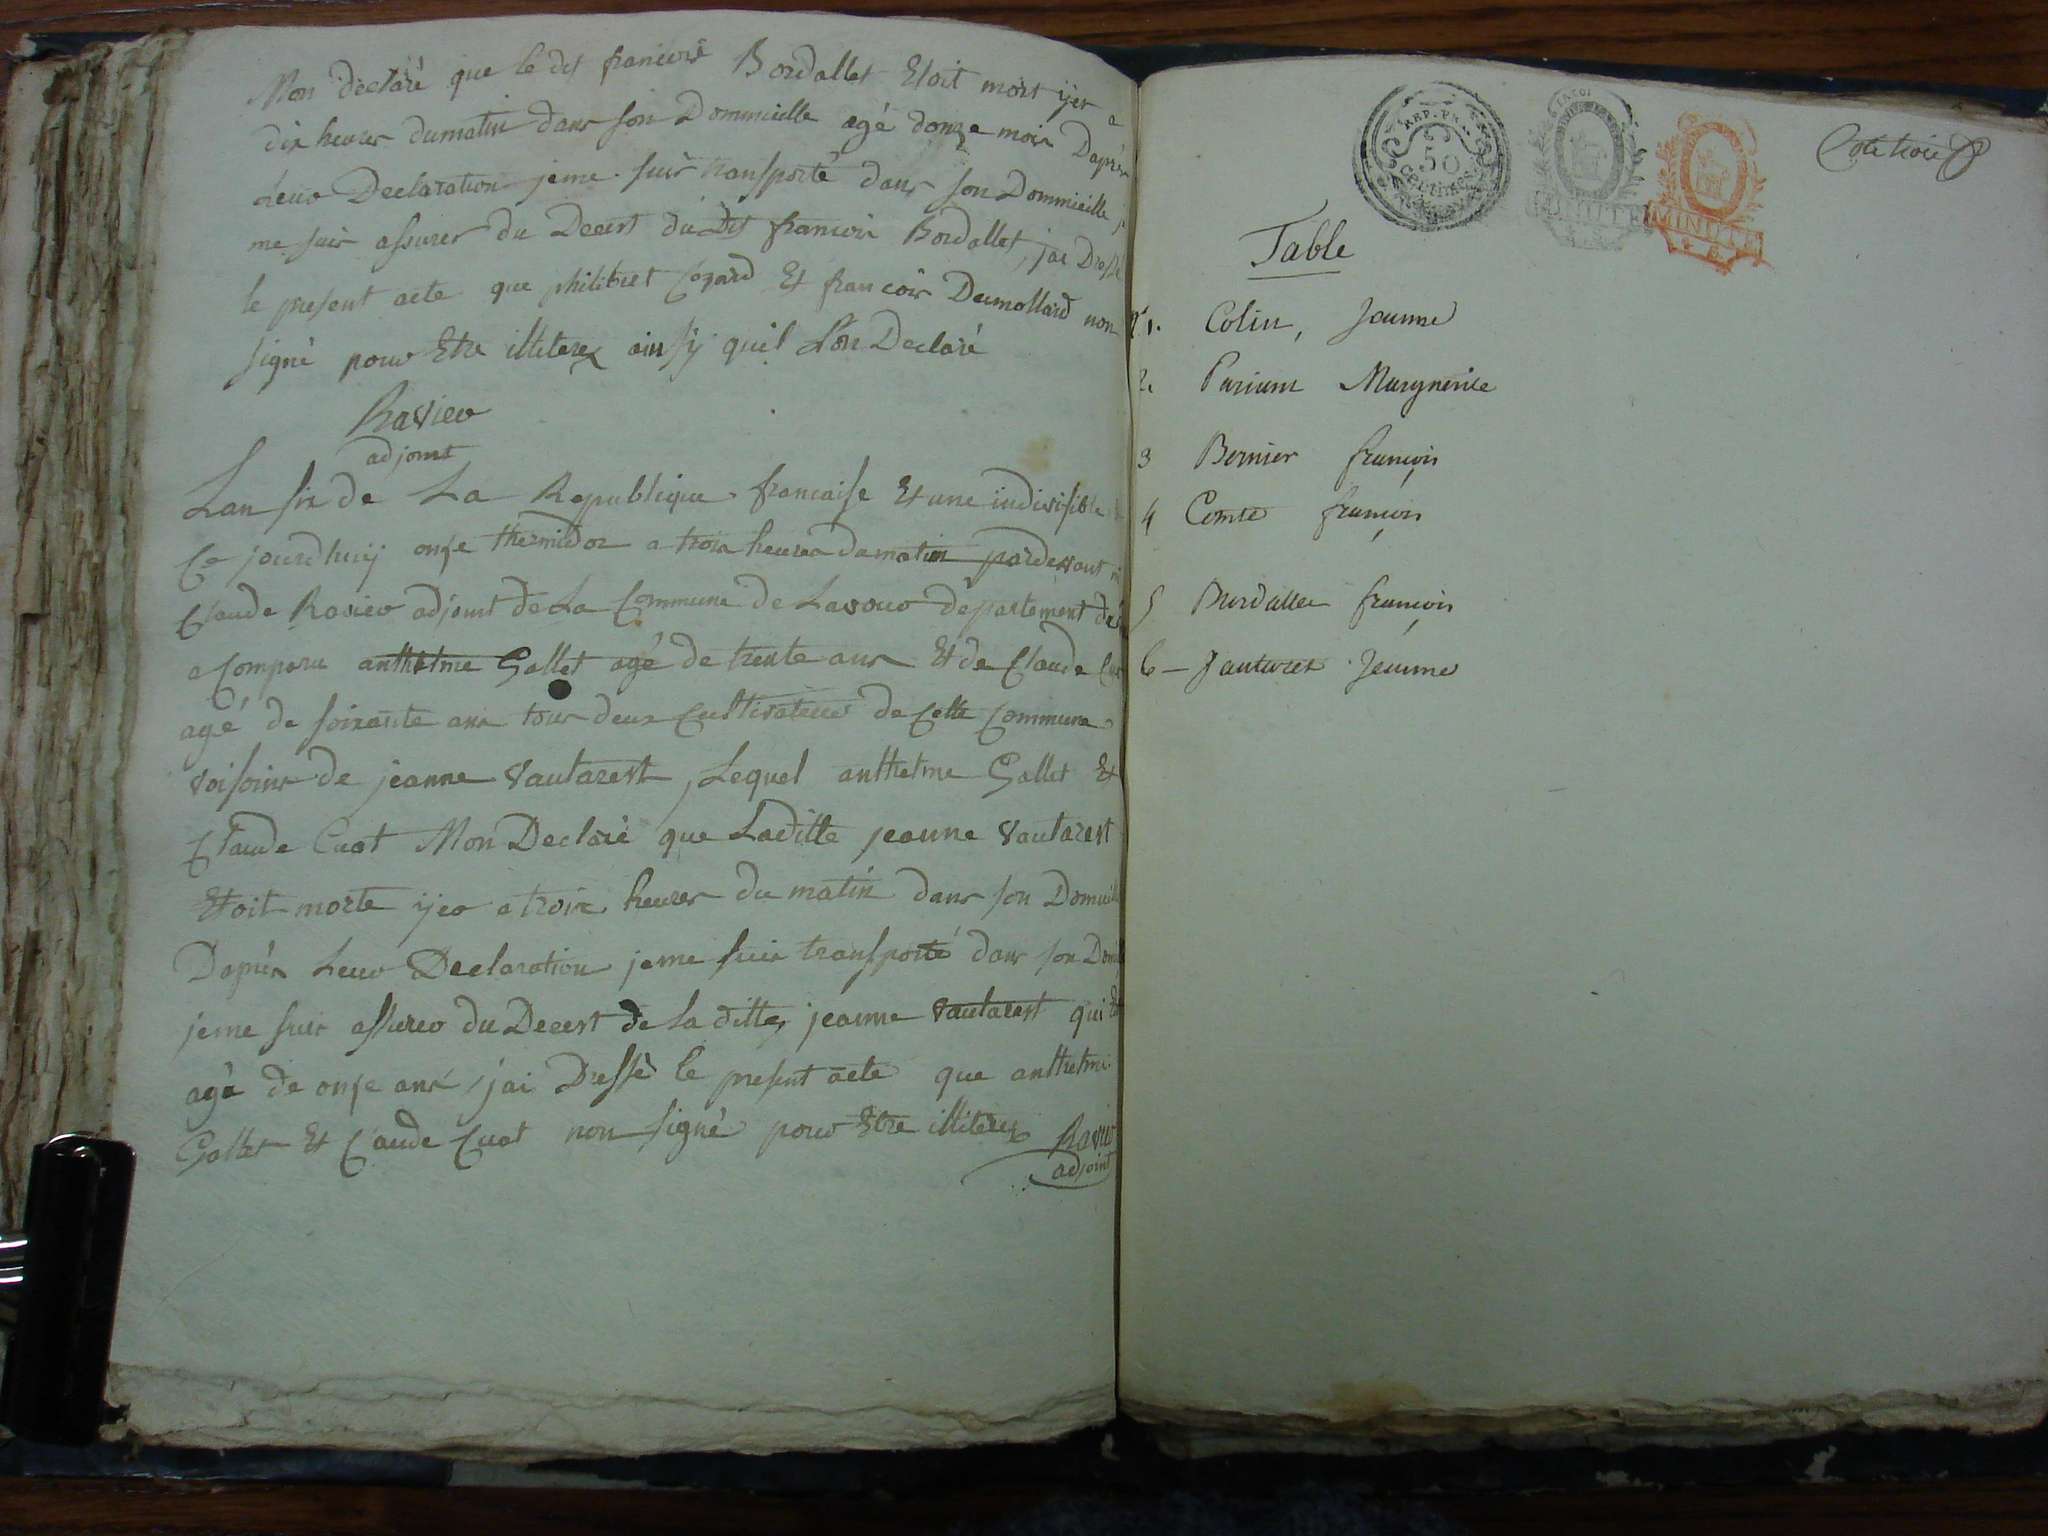 Mon déclaré que le dit francois Bordallet Etoit mort ijer a
dix heures dumatin dans son Dommicille agé donze mois Daprès
leur Declaration jeme suis transporté dans son Dommicille
me suis assurer du Decest du Dit francois Bordallet, jai Dressé
le present acte que philibert Cozard Et francois Dumollard non
signé pour Etre illiterex ainsÿ quil Lon Declaré
Ravier
adjoint
Lan six de La Republique francaise Et une indivisible
Ce jourdhuij onse thermidor a trois heures dumatin pardevant
Claude Ravier adjoint de La Commune de Lavour département de
a Comparu anthelme Gallet agé de trente ans Et de Claude
agé de soixante ans tous deux Cultivateur de Cette Commune
voisoins de jeanne vautarest, Lequel anthelme Gallet Et
Claude Cuat Mon Declaré que Laditte jeanne vautarest
Etoit morte ijer a trois heures du matin dans son
Daprés Leur Declaration jeme suis transporté dans son
jeme suis assurer du Decest de La ditte jeanne vautarest qui
agé de onse ans, jai Dressé le present acte que anthelme
Gallet Et Claude Cuat non signé pour Etre illiterex Ravier
adjoint
REP. FRA.
50
CENTIMES
MINUTE
Cote trois
Table
n°1. Colin, Jeanne
2. Marguerite
3 Bernier françois
4 Comte françois
5 Bordallet françois
6 - Vautaret Jeanne